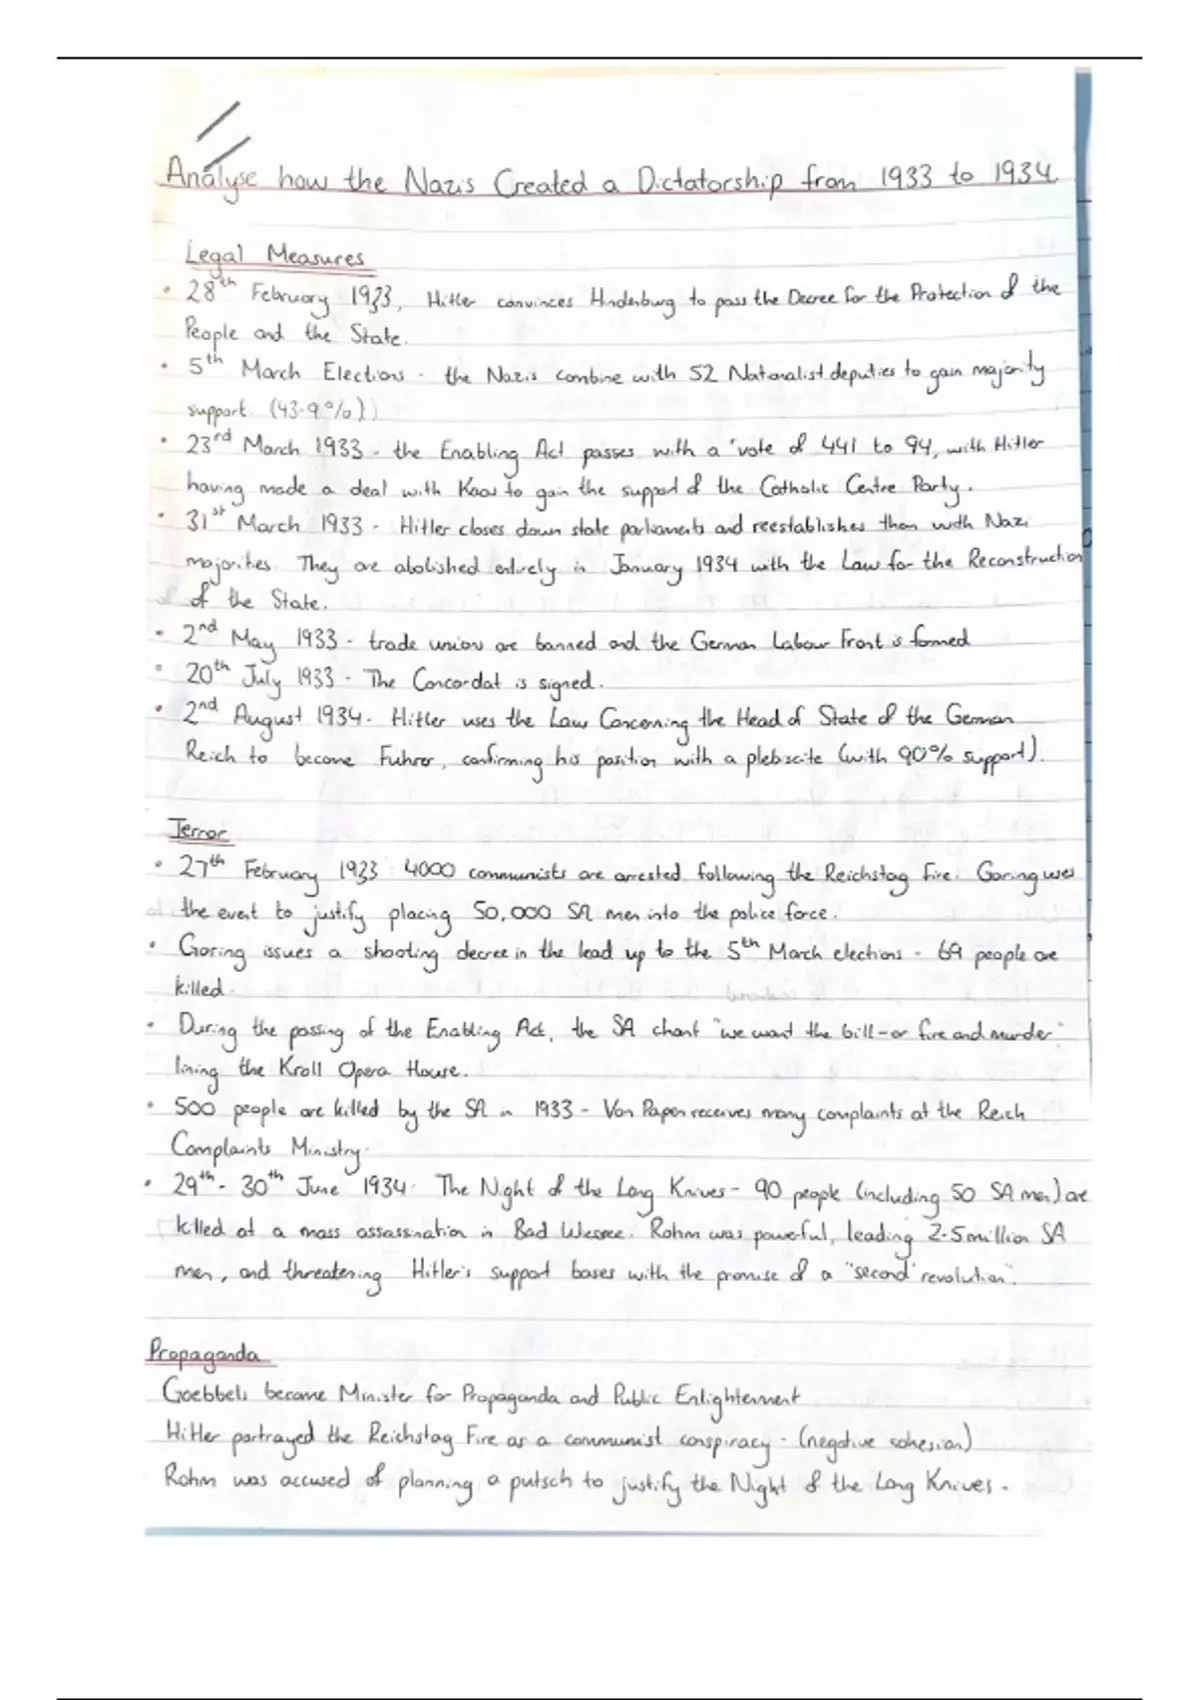 Analyse how the Nazis Created a Dictatorship from 1933 to 1934
Legal Measures
• 28th February 1933, Hitler convinces Hindenburg to pass the Decree for the Protection of the
People and the State.
• 5th March Elections - the Nazis combine with 52 Nationalist deputies to gain majority
support (43.9%)
• 23rd March 1933 - the Enabling Act passes with a vote of 441 to 94, with Hitler
having made a deal with Kaas to gain the support of the Catholic Centre Party.
• 31st March 1933 - Hitler closes down state parliaments and reestablishes them with Nazi
majorities. They are abolished entirely in January 1934 with the Law for the Reconstruction
of the State.
• 2nd May 1933 - trade unions are banned and the German Labour Front is formed
• 20th July 1933 - The Concordat is signed.
• 2nd August 1934 - Hitler uses the Law Concerning the Head of State of the German
Reich to become Fuhrer, confirming his position with a plebiscite (with 90% support).
Terror
• 27th February 1933 4000 communists are arrested following the Reichstag Fire. Goring uses
the event to justify placing 50,000 SA men into the police force.
• Goring issues a shooting decree in the lead up to the 5th March elections - 69 people are
killed.
• During the passing of the Enabling Act, the SA chant "we want the bill - or fire and murder"
lining the Kroll Opera House.
• 500 people are killed by the SA in 1933 - Von Papen receives many complaints at the Reich
Complaints Ministry.
• 29th - 30th June 1934. The Night of the Long Knives - 90 people (including 50 SA men) are
killed at a mass assassination in Bad Wessee. Rohm was powerful, leading 2.5 million SA
men, and threatening Hitler's support bases with the promise of a "second revolution".
Propaganda
Goebbels became Minister for Propaganda and Public Enlightenment
Hitler portrayed the Reichstag Fire as a communist conspiracy - (negative cohesion)
Rohm was accused of planning a putsch to justify the Night of the Long Knives.